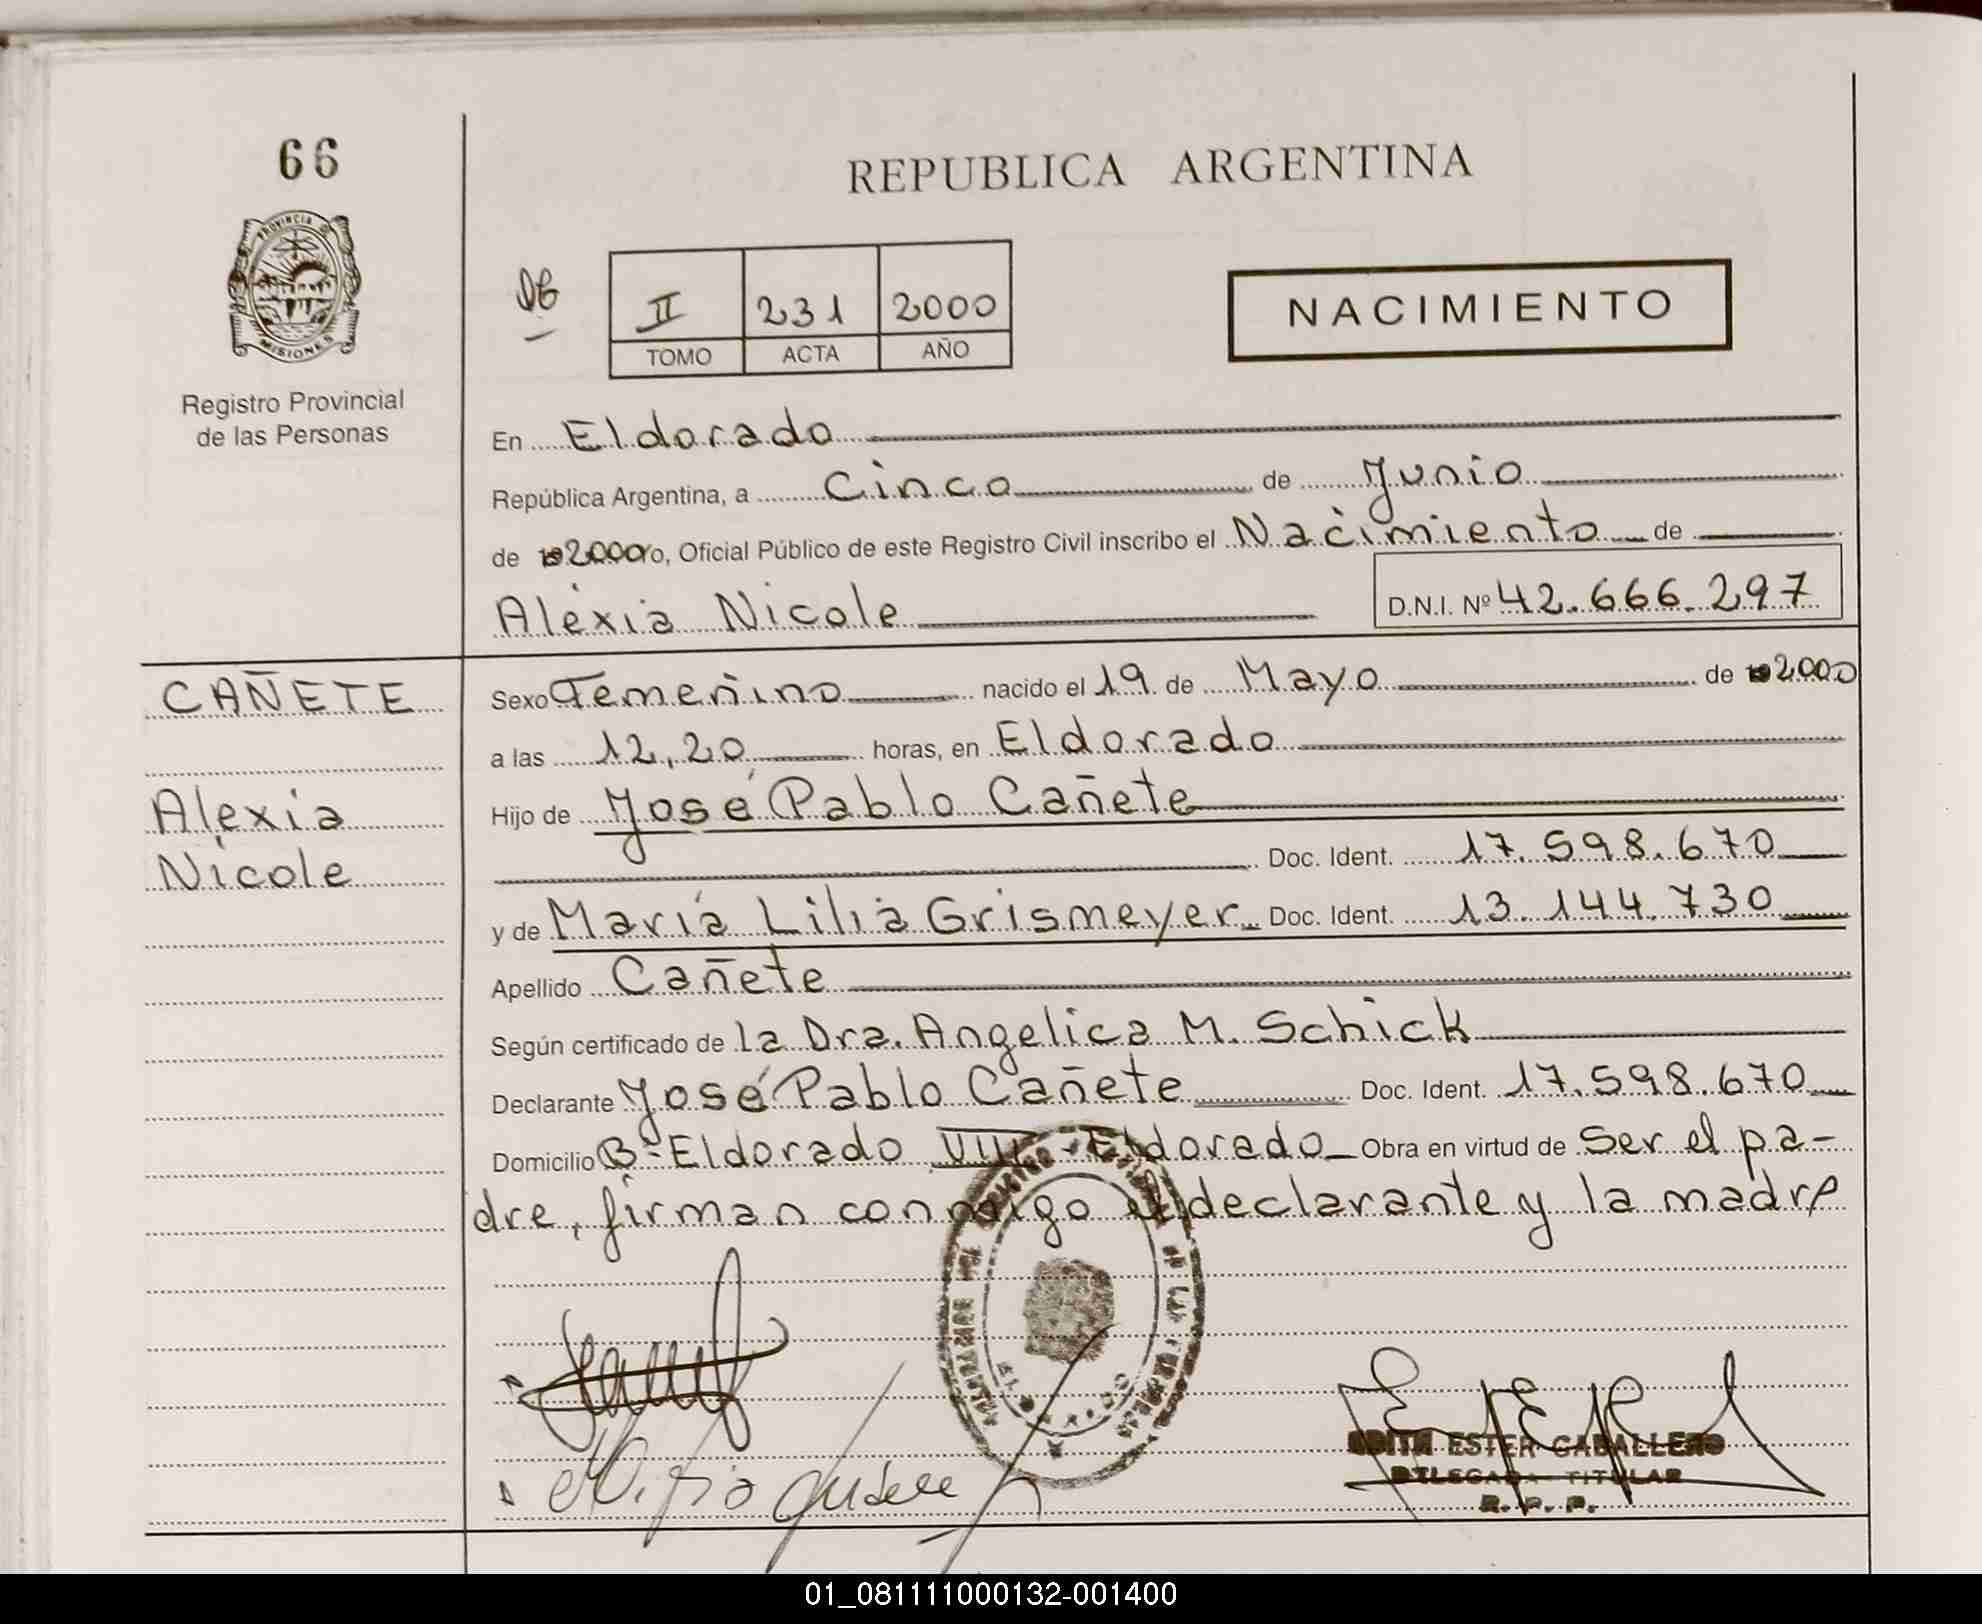 66
REPUBLICA ARGENTINA
PROVINCIA DE
MISIONES
Registro Provincial
de las Personas
II 231 2000
TOMO ACTA AÑO
NACIMIENTO
En Eldorado
República Argentina, a Cinco de Junio
de 2000 yo, Oficial Público de este Registro Civil inscribo el Nacimiento de
Alexia Nicole D.N.I. Nº 42.666.297
CAÑETE
Alexia
Nicole
Sexo Femenino nacido el 19 de Mayo de 2000
a las 12,20 horas, en Eldorado
Hijo de José Pablo Cañete
Doc. Ident. 17.598.670
y de María Lilia Grismeyer Doc. Ident. 13.144.730
Apellido Cañete
Según certificado de la Dra. Angelica M. Schick
Declarante José Pablo Cañete Doc. Ident. 17.598.670
Domicilio Bº Eldorado VIII - Eldorado Obra en virtud de ser el pa-
dre, firman conmigo el declarante y la madre
EDITH ESTER CABALLERO
DELEGADA TITULAR
R. P. P.
01_081111000132-001400